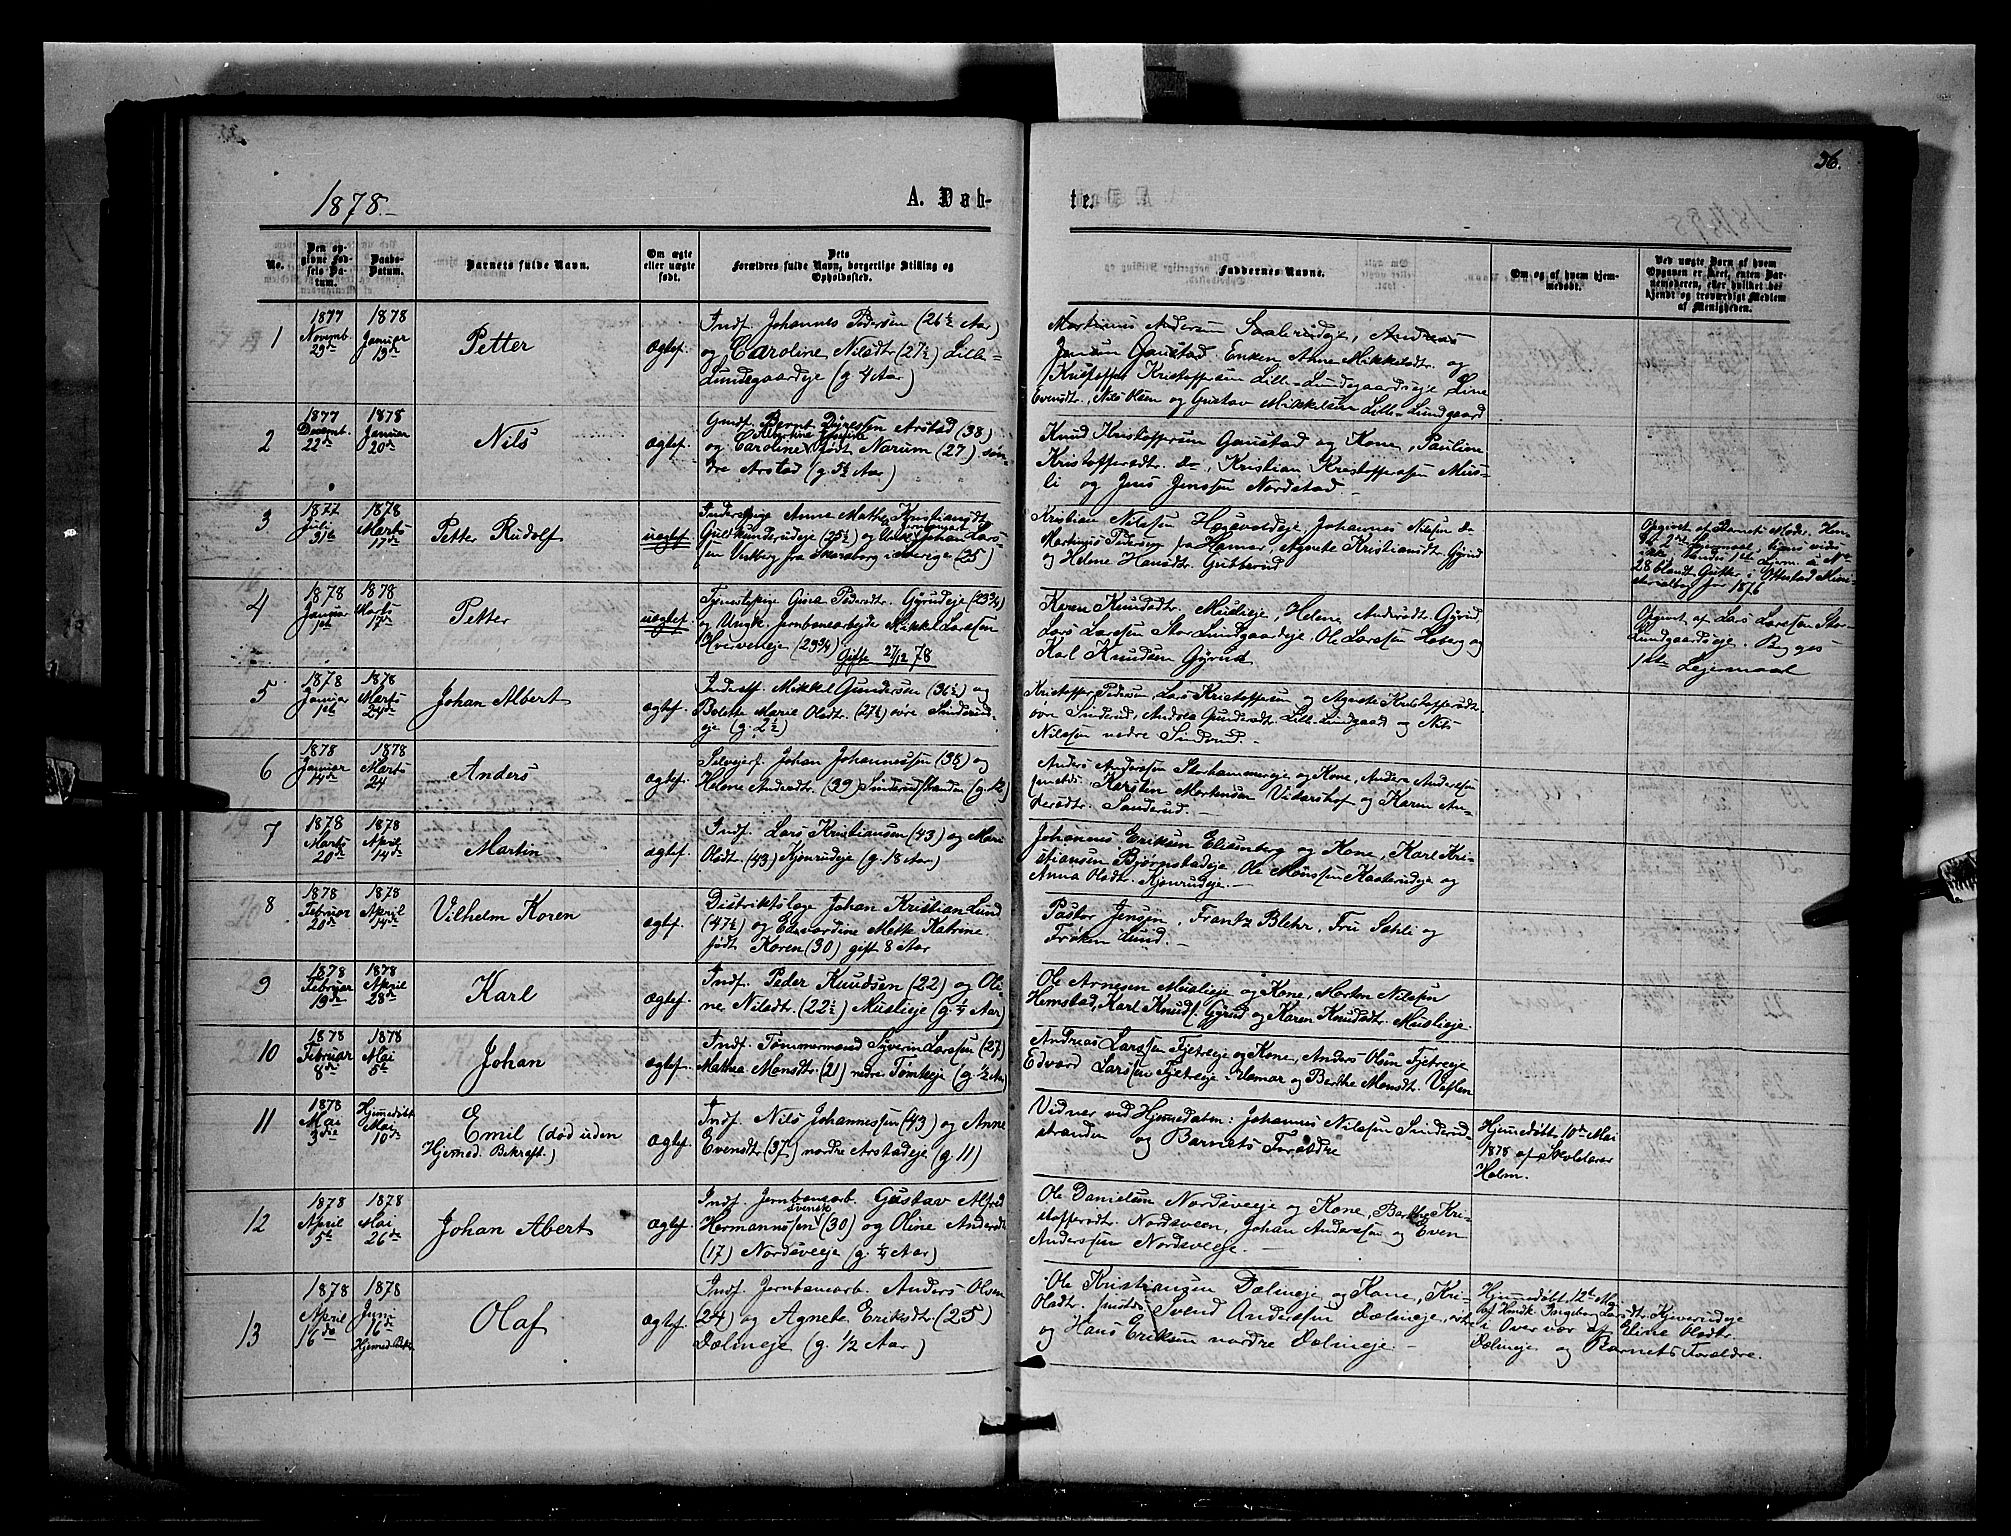 36.
1878.
A. Døb-
te.
No.
Den op-
givne Fød-
sels Da-
tum.
Daabs-
Datum.
Barnets fulde Navn.
Om ægte
eller uægte
født.
Dets
Forældres fulde Navn, borgerlige Stilling og
Opholdssted.
Faddernes Navne.
Om og af hvem hjem-
medøbt.
Ved uægte Barn af hvem
Opgaven er skeet, enten Bar-
nemoderen, eller hvilket be-
kjendt og troværdigt Medlem
af Menigheden.
1
1877
Novemb.
29de
1878
Januar
13de
Petter
ægtef.
Indf. Johannes Pedersen (26½ Aar)
og Caroline Nilsdtr. (27½) Lille-
Lundegaardeje (g. 4 Aar)
Martinus Andersen Saalerudeje, Andreas
Jensen Gaustad Enken Anne Mikkelsdtr. og
Kristoffer Kristoffersen Lille-Lundgaardseje Line
Evensdtr., Nils Olsen og Gustav Mikkelsen Lille-Lundgaard
2
1877
Decembr.
22de
1878
Januar
20de
Nils
ægtef.
Gmdf. Bernt Dyresen Arstad (38)
og Caroline Albertine født Narum (27) søn-
dre Arstad (g. 5½ Aar)
Knud Kristoffersen Gaustad og Kone, Pauline
Kristoffersdtr. do, Kristian Kristoffersen Mus-
li og Jens Jenssen Nordstad.
3
1877
Juli
31te
1878
Marts
17de
Petter Rudolf
uægtef.
Inderstpige Anne Mathea Kristiansdtr.
Guldkunderudeje (25½) og Johan Lars-
sen fra Skaraborg i Sverige (25)
Kristian Nilssen Hogsvoldeje, Johannes Nilssen do
Martinus Pedersen fra Hamar, Agnete Kristiansdtr. Gyrud
og Helene Hansdtr. Gutterud
Opgivet af Barnets Moder. Hen-
des 2det Lejermaal,
ikke hendes 1ste Lejerm. i No
28 blandt Gutter i Ottestad Mini-
sterialbog for 1876
4
1878
Januar
1ste
1878
Marts
17de
Petter
uægtef.
Tjenestepige Gina Pedersdtr. Gyrudeje (23¾)
og Ungk. Jernbanearbejder Mikkel Larssen
Hverveneje (23¾)
Gifte 27/12 78
Karen Knudsdtr. Muslieje, Helene Andersdtr. Gyrud,
Lars Larssen Stor Lundgaardeje, Ole Larssen Hoberg og
Karl Knudsen Gyrud
Opgivet af Lars Larssen Stor-
Lundgaardseje. Begges
1ste Lejermaal
5
1878
Januar
1ste
1878
Marts
24de
Johan Albert
ægtef.
Inderst. Mikkel Gundersen (36½) og
Bolette Marie Olsdtr. (27½) øvre Sinderud-
eje (g. 2½)
Kristoffer Pedersen, Lars Kristoffersen og Agnete Kristoffersdtr.
øvre Sinderud, Andrea Gundersdtr. Lille-Lundgaard og Nils
Nilssen nedre Sinderud.
6
1878
Januar
14de
1878
Marts
24
Anders
ægtef.
Selvejerf. Johan Johannessen (38) og
Helene Andersdtr. (39) Sinderudstranden (g. 12)
Anders Anderssen Storhammereje og Kone, Anders Anderssen
smstds. Karsten Mortensen Vidarshof og Karen An-
dersdtr. Sanderud.
7
1878
Marts
20de
1878
April
14de
Martin
ægtef.
Indf. Lars Kristiansen (43) og Mari
Olsdtr. (43) Kjonrudeje (g. 18 Aar)
Johannes Eriksen Elisenberg og Kone, Karl Kri-
stiansen Bjørnstadeje, Ole Monssen Kaaterudeje og
Anna Olsdtr. Kjonrudeje.
8
1878
Februar
20de
1878
April
14de
Vilhelm Koren
ægtef.
Distriktslæge Johan Kristian Lund
(47½) og Edvardine Mette Katrine
født Koren (30) gift 8 Aar
Pastor Jensen, Frantz Blehr, Fru Sehli og
Frøken Lund.
9
1878
Februar
19de
1878
April
28de
Karl
ægtef.
Indf. Peder Knudsen (22) og Oli-
ne Nilsdtr. (22½) Muslieje (g. ¼ Aar)
Ole Arnesen Muslieje og Kone, Morten Nilssen
Hemstad, Karl Knuds. Gyrud og Karen Knudsdtr. Muslieje.
10
1878
Februar
8de
1878
Mai
5te
Johan
ægtef.
Indf. Tømmermand Syverin Larssen (27)
Mathea Monsdtr. (21) nedre Tomteje (g. ½ Aar)
Andreas Larssen Fjetreeje og Kone, Anders Olsen Fjetreeje
Edvard Larssen Fjetreeje, Hamar og Berthe Monsdtr. Veflen
11
1878
Mai
3die
Hjemmedøbt
Mai
10de
Emil (død uden
Hjemmed. Bekræft.)
ægtef.
Indf. Nils Johannessen (43) og Anne
Evensdtr. (37) nordre Arstadeje (g. 11)
Vidner ved Hjemmedaaben: Johannes Nilssen Sinderud-
stranden og Barnets Forældre
Hjemmedøbt 10de Mai
1878 af Skolelærer
Holm.
12
1878
April
5te
1878
Mai
26de
Johan Abert
ægtef.
Indf. Jernbanearb. Gustav Alfred
Hermannssen svensk (30) og Oline Andersdtr.
(17) Nordsveeje (g. ¼ Aar)
Ole Danielsen Nordsveeje og Kone, Berthe Kri-
stoffersdtr. Nordsveen, Johan Anderssen og Even
Anderssen Nordsveeje.
13
1878
April
16de
1878
Juni
16de
Hjemmed. Bekr.
Olaf
ægtef.
Indf. Jernbanearb. Anders Olsen
(24) og Agnete Eriksdtr. (25)
Dølineje (g. ½ Aar)
Ole Kristiansen Dølineje og Kone, Kri-
Olsdtr. smstds. Svend Anderssen Dølineje,
og Hans Eriksen nordre Dølineje.
Hjemmedøbt 12te Mai
af Ingeborg Larsdtr. Kjeverudeje
i Overvær af Eline Olsdtr.
Dølineje og Barnets Forældre.